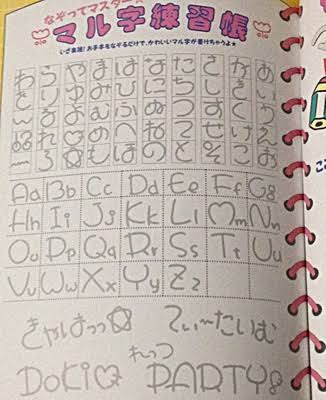 なぞってマスター
マル字練習帳
いざ実践!お手本をなぞるだけで、かわいいマル字が書けちゃうよ★
あいうえお
かきくけこ
さしすせそ
たちつてと
なにぬねの
はひふへほ
まみむめも
やゆよ♡☆
らりるれろ
わをん
Aa Bb Cc Dd Ee Ff Gg
Hh Ii Jj Kk Ll Mm Nn
Oo Pp Qq Rr Ss Tt Uu
Vv Ww Xx Yy Zz
きゃはっっ☆ てぃ〜たいむ
れっつ
DOKI♡ PARTY